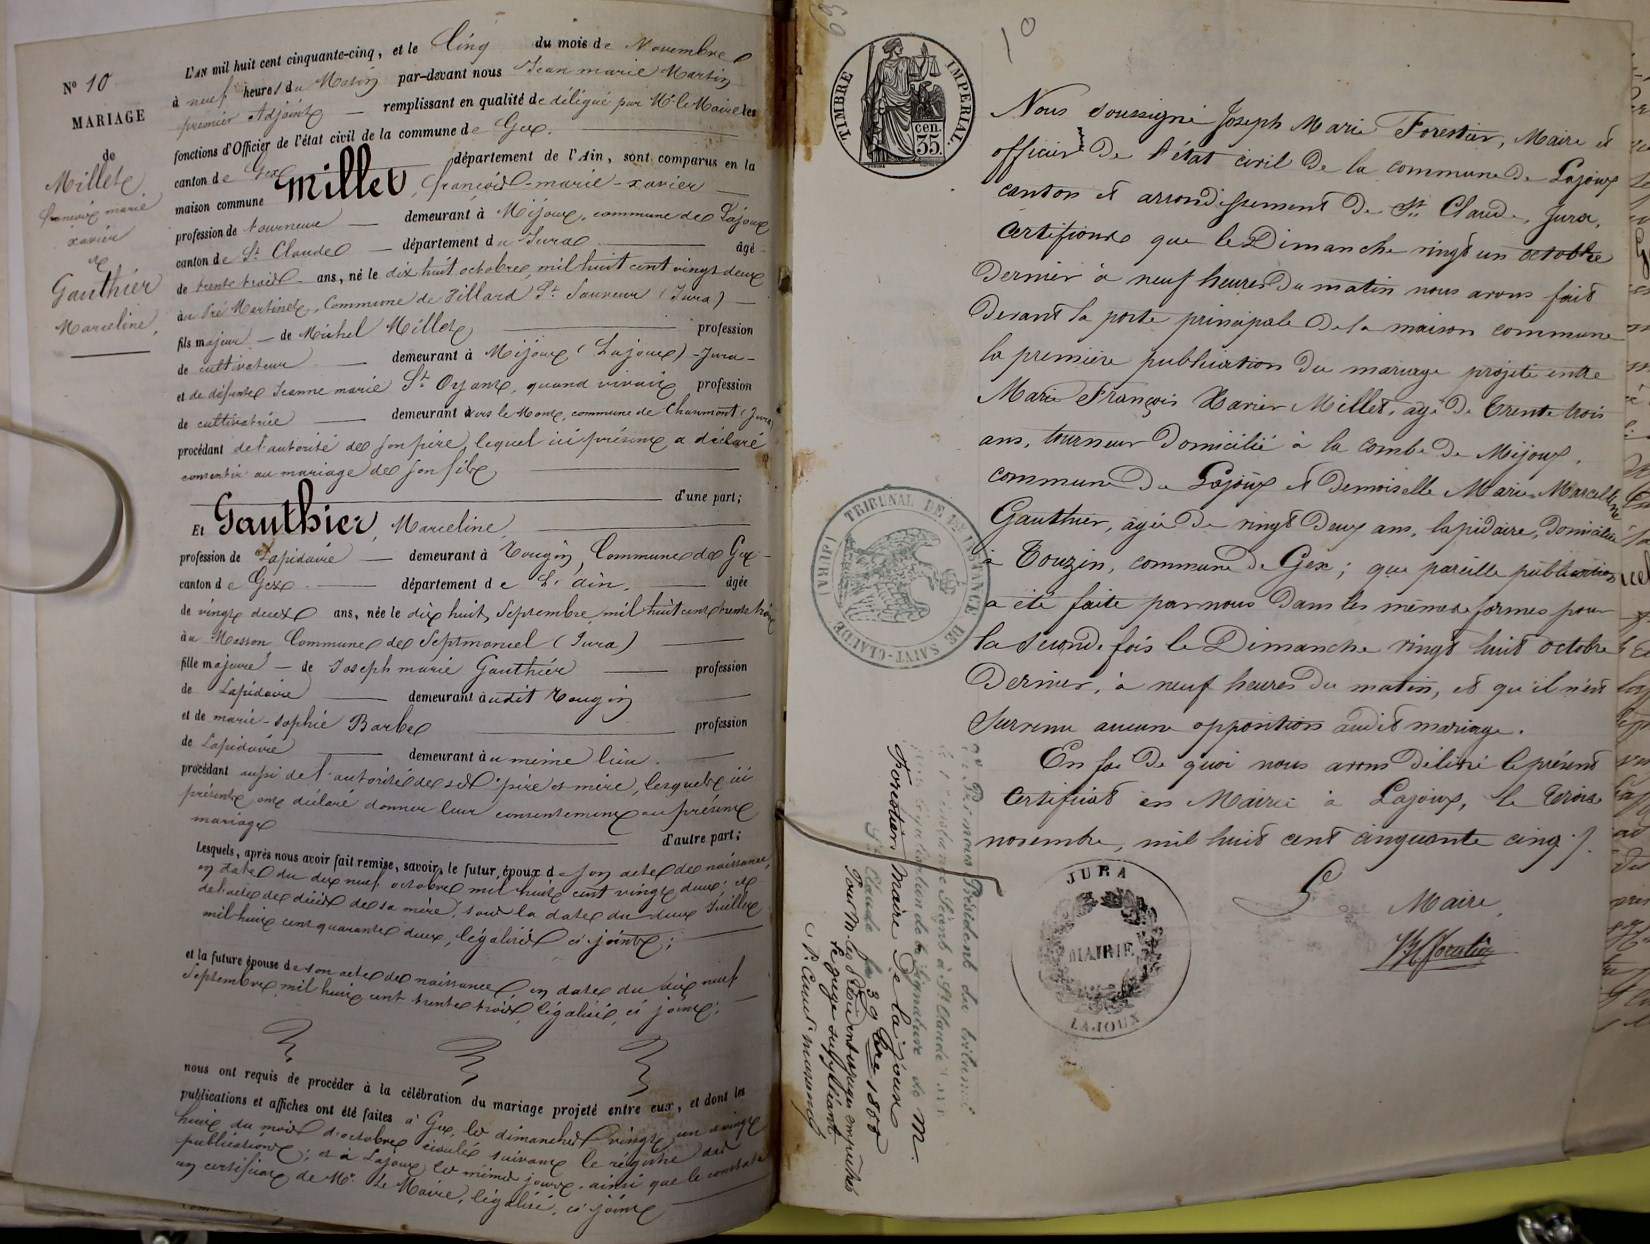 N° 10
MARIAGE
de
Millet
françois marie
xavier
et
Gauthier
Marceline,
L'AN mil huit cent cinquante-cinq, et le Cinq du mois de Novembre
à neuf heures du Matin par-devant nous Jean marie Martin
premier Adjoint remplissant en qualité de délégué par Mr le Maire les
fonctions d'Officier de l'état civil de la commune de Gex.
canton de Gex département de l'Ain, sont comparus en la
maison commune Millet, françois-marie-xavier
profession de tourneur demeurant à Mijoux, commune de Lajoux
canton de St Claude département du Jura âgé
de trente trois ans, né le dix huit octobre, mil huit cent vingt deux
au Pré Martinet, Commune de Villard St Sauveur (Jura)
fils majeur de Michel Millet profession
de cultivateur demeurant à Mijoux (Lajoux) - Jura -
et de défunte Jeanne marie St Oyant, quand vivait profession
de cultivatrice demeurant vers le Mont, commune de Chaumont (Jura)
procédant de l'autorité de son père, lequel ici présent a déclaré
consentir au mariage de son fils,
d'une part;
Et Gauthier, Marceline,
profession de Lapidaire demeurant à Tougin, Commune de Gex -
canton de Gex département de L'ain, âgée
de vingt deux ans, née le dix huit Septembre, mil huit cent trente trois
au Masson Commune de Septmoncel (Jura)
fille majeure de Joseph marie Gauthier profession
de Lapidaire demeurant audit Tougin
et de marie-sophie Barbe profession
de Lapidaire demeurant au même lieu.
procédant aussi de l'autorité de ses père et mère, lesquels ici
présents ont déclaré donner leur consentement au présent
mariage d'autre part;
Lesquels, après nous avoir fait remise, savoir, le futur, époux de son acte de naissance,
en date du dix neuf octobre mil huit cent vingt deux; et
de l'acte de décès de sa mère, sous la date du deux Juillet
mil huit cent quarante deux, légalisés ci-joints;
et la future épouse de son acte de naissance en date du dix neuf
Septembre mil huit cent trente trois, légalisé, ci joint;
nous ont requis de procéder à la célébration du mariage projeté entre eux, et dont les
publications et affiches ont été faites à Gex, les dimanches vingt un vingt
huit du mois d'octobre écoulé suivant le registre des
publications; et à Lajoux les mêmes jours, ainsi que le constate
un certificat de Mr Le Maire, légalisé, ci joint
10
TIMBRE IMPÉRIAL
35 cen.
Nous soussigné Joseph Marie Forestier, Maire et
officier de l'état civil de la commune de Lajoux
canton et arrondissement de St Claude, Jura,
Certifions que le Dimanche vingt un octobre
dernier à neuf heures du matin nous avons fait
devant la porte principale de la maison commune
la première publication du mariage projeté entre
Marie François Xavier Millet, agé de trente trois
ans, tourneur domicilié à la combe de Mijoux,
commune de Lajoux et demoiselle Marie Marcelline
Gauthier, âgée de vingt deux ans, lapidaire, domiciliée
à Touzin, commune de Gex; que pareille publication
a été faite par nous dans les mêmes formes pour
la seconde fois le Dimanche vingt huit octobre
dernier, à neuf heures du matin, et qu'il n'est
survenu aucune opposition audit mariage.
En foi de quoi nous avons délivré le présent
certificat en Mairie à Lajoux, le trois
novembre, mil huit cent cinquante cinq.
Le Maire,
JM Forestier
TRIBUNAL DE 1RE INSTANCE DE SAINT-CLAUDE (JURA)
JURA
MAIRIE
LAJOUX
Vu Par nous Président du tribunal
de 1re instance Séant à St Claude (Jura)
pour légalisation de la Signature de M.
Forestier maire de lajoux
St Claude le 3 9bre 1855
Pour M. les Président et Juges empêchés
Le Juge suppléant